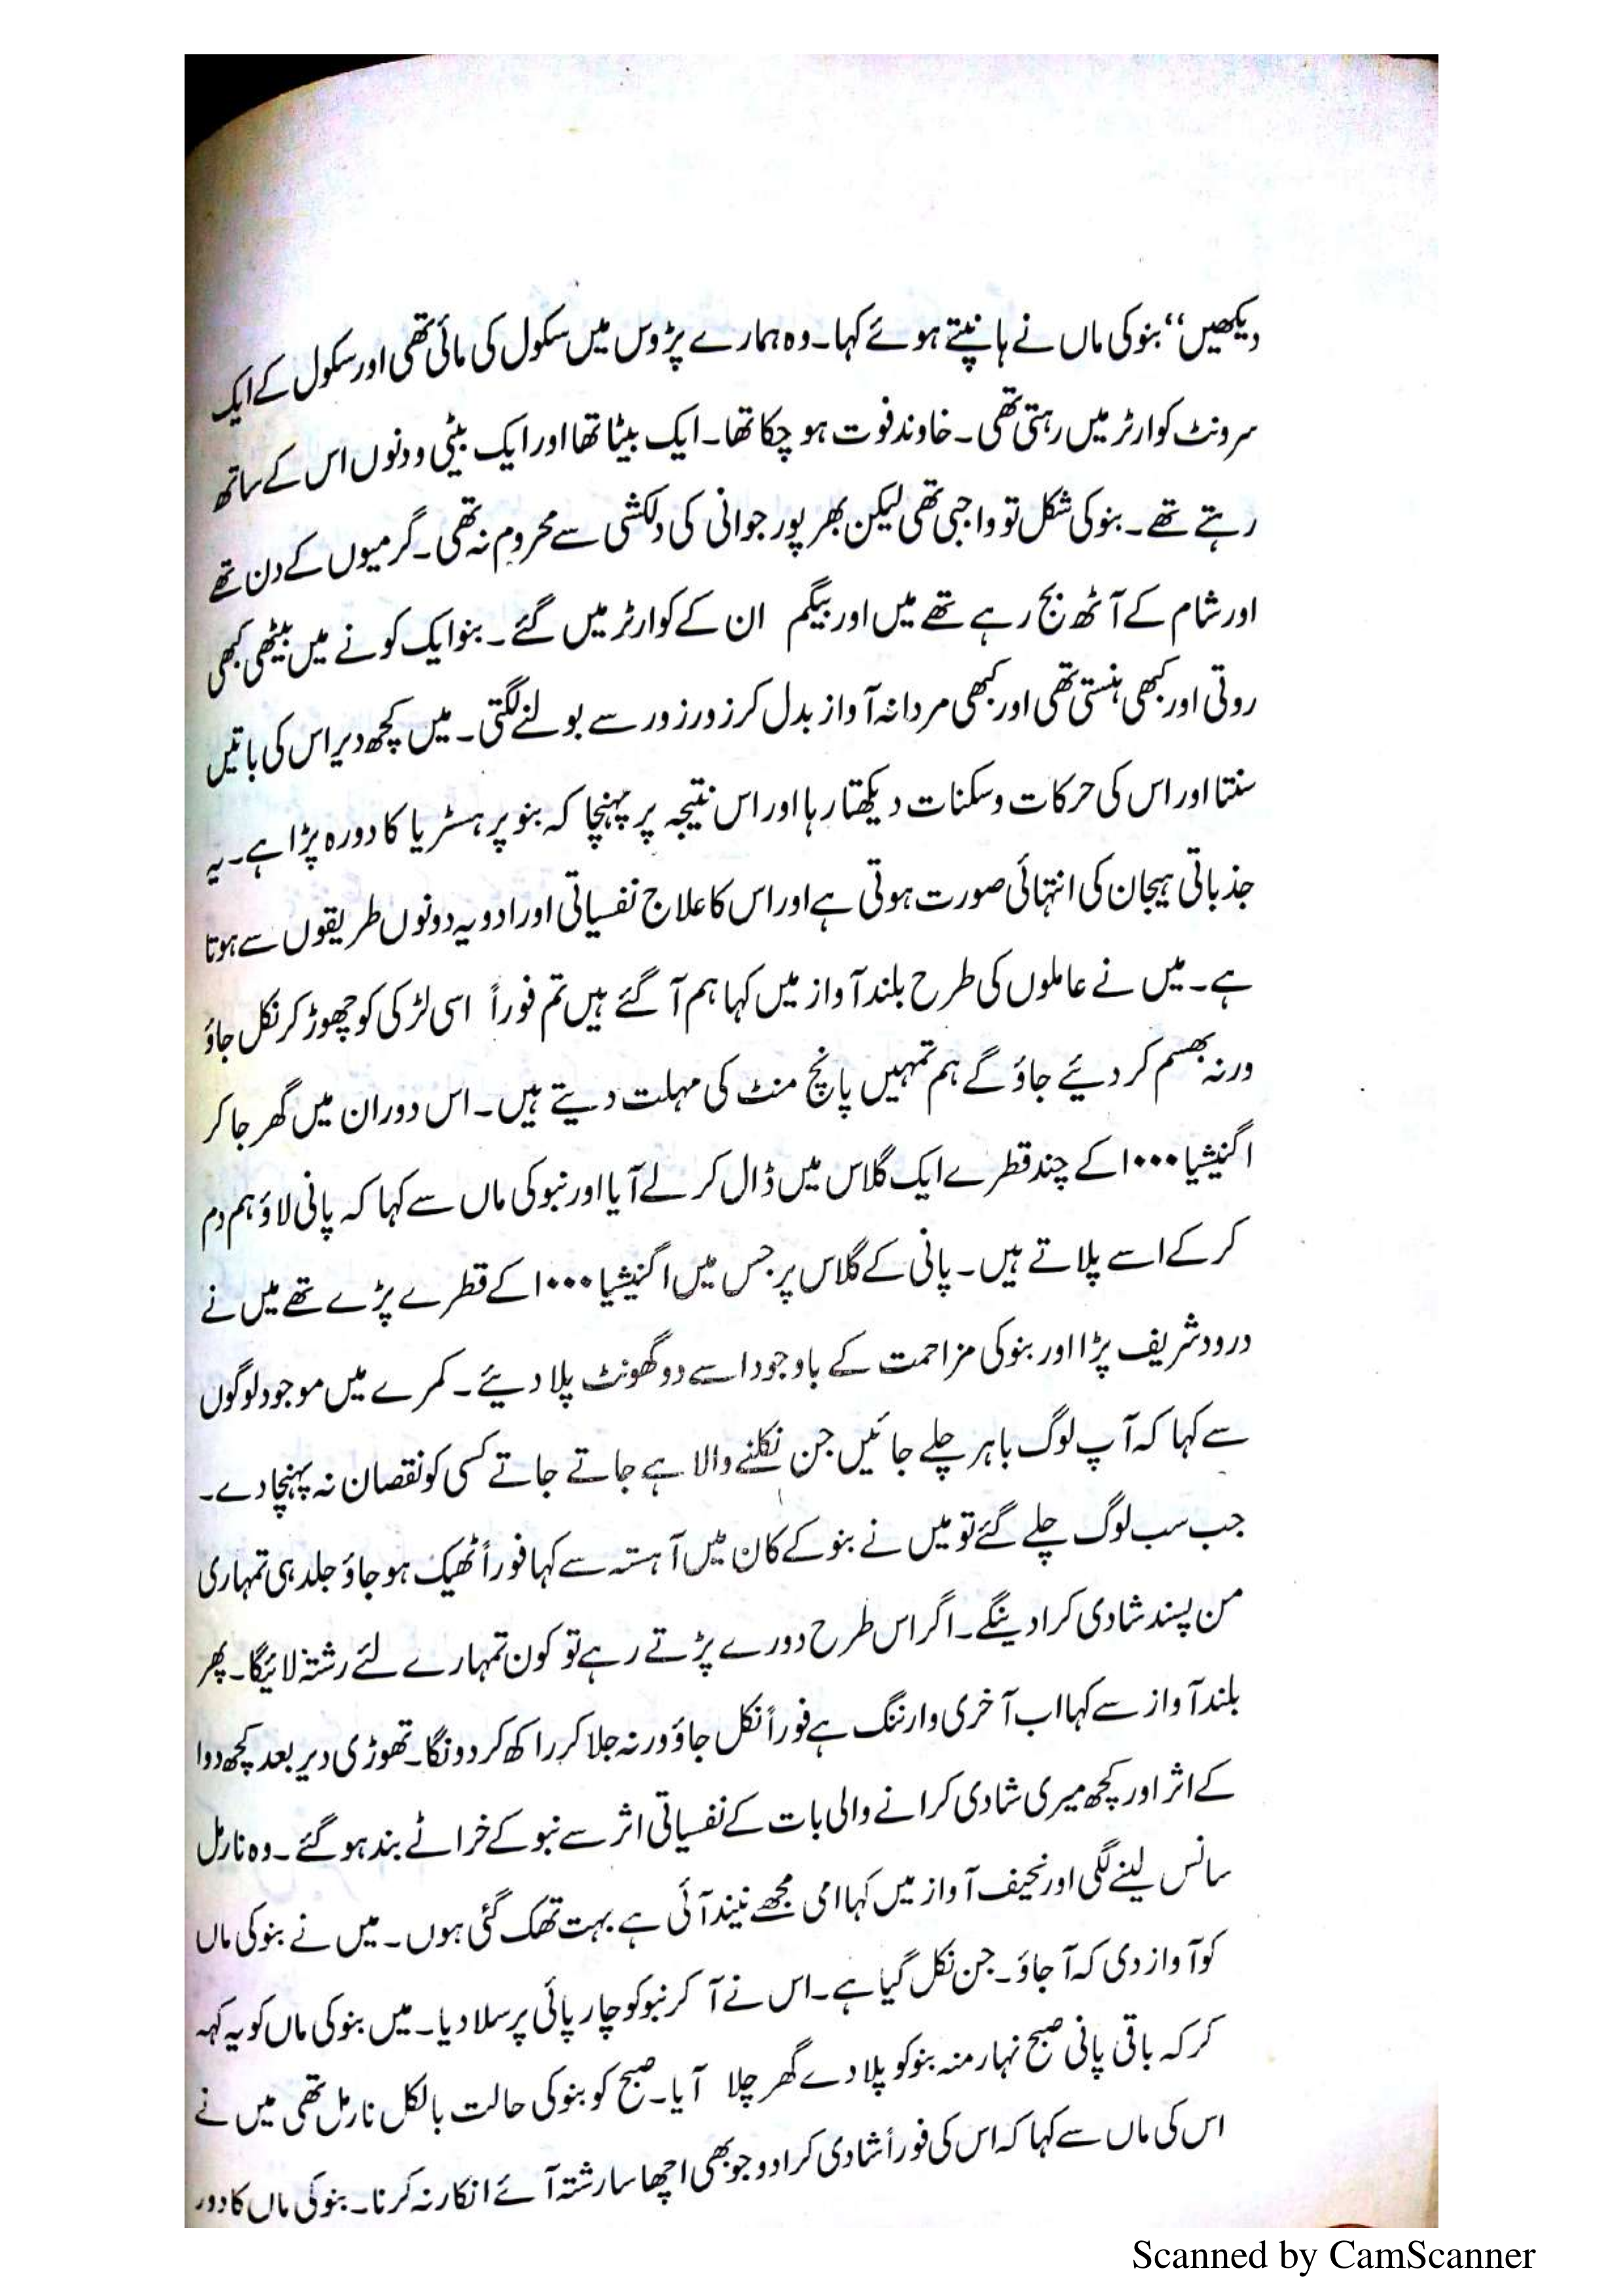 دیکھیں‘‘ بنو کی ماں نے ہانپتے ہوئے کہا۔ وہ ہمارے پڑوس میں سکول کی مائی تھی اور سکول کے ایک
سرونٹ کوارٹر میں رہتی تھی۔ خاوند فوت ہو چکا تھا۔ ایک بیٹا تھا اور ایک بیٹی و دنوں اس کے ساتھ
رہتے تھے۔ بنو کی شکل تو واجبی تھی لیکن بھر پور جوانی کی دلکشی سے محروم نہ تھی۔ گرمیوں کے دن تھے
اور شام کے آٹھ بج رہے تھے میں اور بیگم ان کے کوارٹر میں گئے۔ بنو ایک کونے میں بیٹھی کبھی
روتی اور کبھی ہنستی تھی اور کبھی مردانہ آواز بدل کر زور زور سے بولنے لگتی۔ میں کچھ دیر اس کی باتیں
سنتا اور اس کی حرکات و سکنات دیکھتا رہا اور اس نتیجہ پر پہنچا کہ بنو پر ہسٹریا کا دورہ پڑا ہے۔ یہ
جذباتی ہیجان کی انتہائی صورت ہوتی ہے اور اس کا علاج نفسیاتی اور ادویہ دونوں طریقوں سے ہوتا
ہے۔ میں نے عاملوں کی طرح بلند آواز میں کہا ہم آ گئے ہیں تم فوراً اسی لڑکی کو چھوڑ کر نکل جاؤ
ورنہ بھسم کر دیئے جاؤ گے ہم تمہیں پانچ منٹ کی مہلت دیتے ہیں۔ اس دوران میں گھر جا کر
اگنیشیا ۱۰۰۰ کے چند قطرے ایک گلاس میں ڈال کر لے آیا اور نبو کی ماں سے کہا کہ پانی لاؤ ہم دم
کر کے اسے پلاتے ہیں۔ پانی کے گلاس پر جس میں اگنیشیا ۱۰۰۰ کے قطرے پڑے تھے میں نے
درود شریف پڑا اور بنو کی مزاحمت کے باوجود اسے دو گھونٹ پلا دیئے۔ کمرے میں موجود لوگوں
سے کہا کہ آپ لوگ باہر چلے جائیں جن نکلنے والا ہے جاتے جاتے کسی کو نقصان نہ پہنچا دے۔
جب سب لوگ چلے گئے تو میں نے بنو کے کان میں آہستہ سے کہا فوراً ٹھیک ہو جاؤ جلد ہی تمہاری
من پسند شادی کرا دینگے۔ اگر اس طرح دورے پڑتے رہے تو کون تمہارے لئے رشتہ لائیگا۔ پھر
بلند آواز سے کہا اب آخری وارننگ ہے فوراً نکل جاؤ ورنہ جلا کر راکھ کر دونگا۔ تھوڑی دیر بعد کچھ دوا
کے اثر اور کچھ میری شادی کرانے والی بات کے نفسیاتی اثر سے نبو کے خراٹے بند ہو گئے۔ وہ نارمل
سانس لینے لگی اور نحیف آواز میں کہا امی مجھے نیند آئی ہے بہت تھک گئی ہوں۔ میں نے بنو کی ماں
کو آواز دی کہ آ جاؤ۔ جن نکل گیا ہے۔ اس نے آ کر نبو کو چارپائی پر سلا دیا۔ میں بنو کی ماں کو یہ کہہ
کر کہ باقی پانی صبح نہار منہ بنو کو پلا دے گھر چلا آیا۔ صبح کو بنو کی حالت بالکل نارمل تھی میں نے
اس کی ماں سے کہا کہ اس کی فوراً شادی کرا دو جو بھی اچھا سا رشتہ آئے انکار نہ کرنا۔ بنو کی ماں کا دور
Scanned by CamScanner